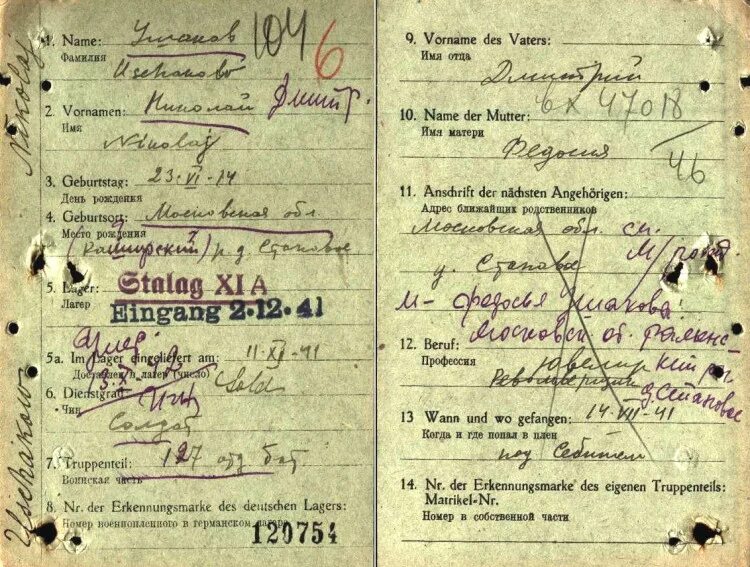 Nikolaj
Uschakow
1. Name: Ушаков
Фамилия
Uschakow
104
6
2. Vornamen: Николай Дмитр.
Имя
Nikolaj
3. Geburtstag: 23.VI.14
День рождения
4. Geburtsort: Московская обл
Место рождения
(Каширский) р д Становое
5. Lager: Stalag XI A
Лагерь
Eingang 2.12.41
5a. Im Lager eingeliefert am: 11.XI.41
Доставлен в лагерь (число)
6. Dienstgrad: Sold
Чин
Солдат
7. Truppenteil: 127 отд бат
Воинская часть
8. Nr. der Erkennungsmarke des deutschen Lagers:
Номер военнопленного в германском лагере
120754
9. Vorname des Vaters:
Имя отца
Дмитрий
47018
10. Name der Mutter:
Имя матери
Федосия
46
11. Anschrift der nächsten Angehörigen:
Адрес ближайших родственников
Московская обл. ст.
д. Становое
м- Федосья Ушакова
12. Beruf: Московск об.
Профессия
д. Становое
13 Wann und wo gefangen: 14.VII.41
Когда и где попал в плен
под Себежем
14. Nr. der Erkennungsmarke des eigenen Truppenteils:
Matrikel-Nr.
Номер в собственной части